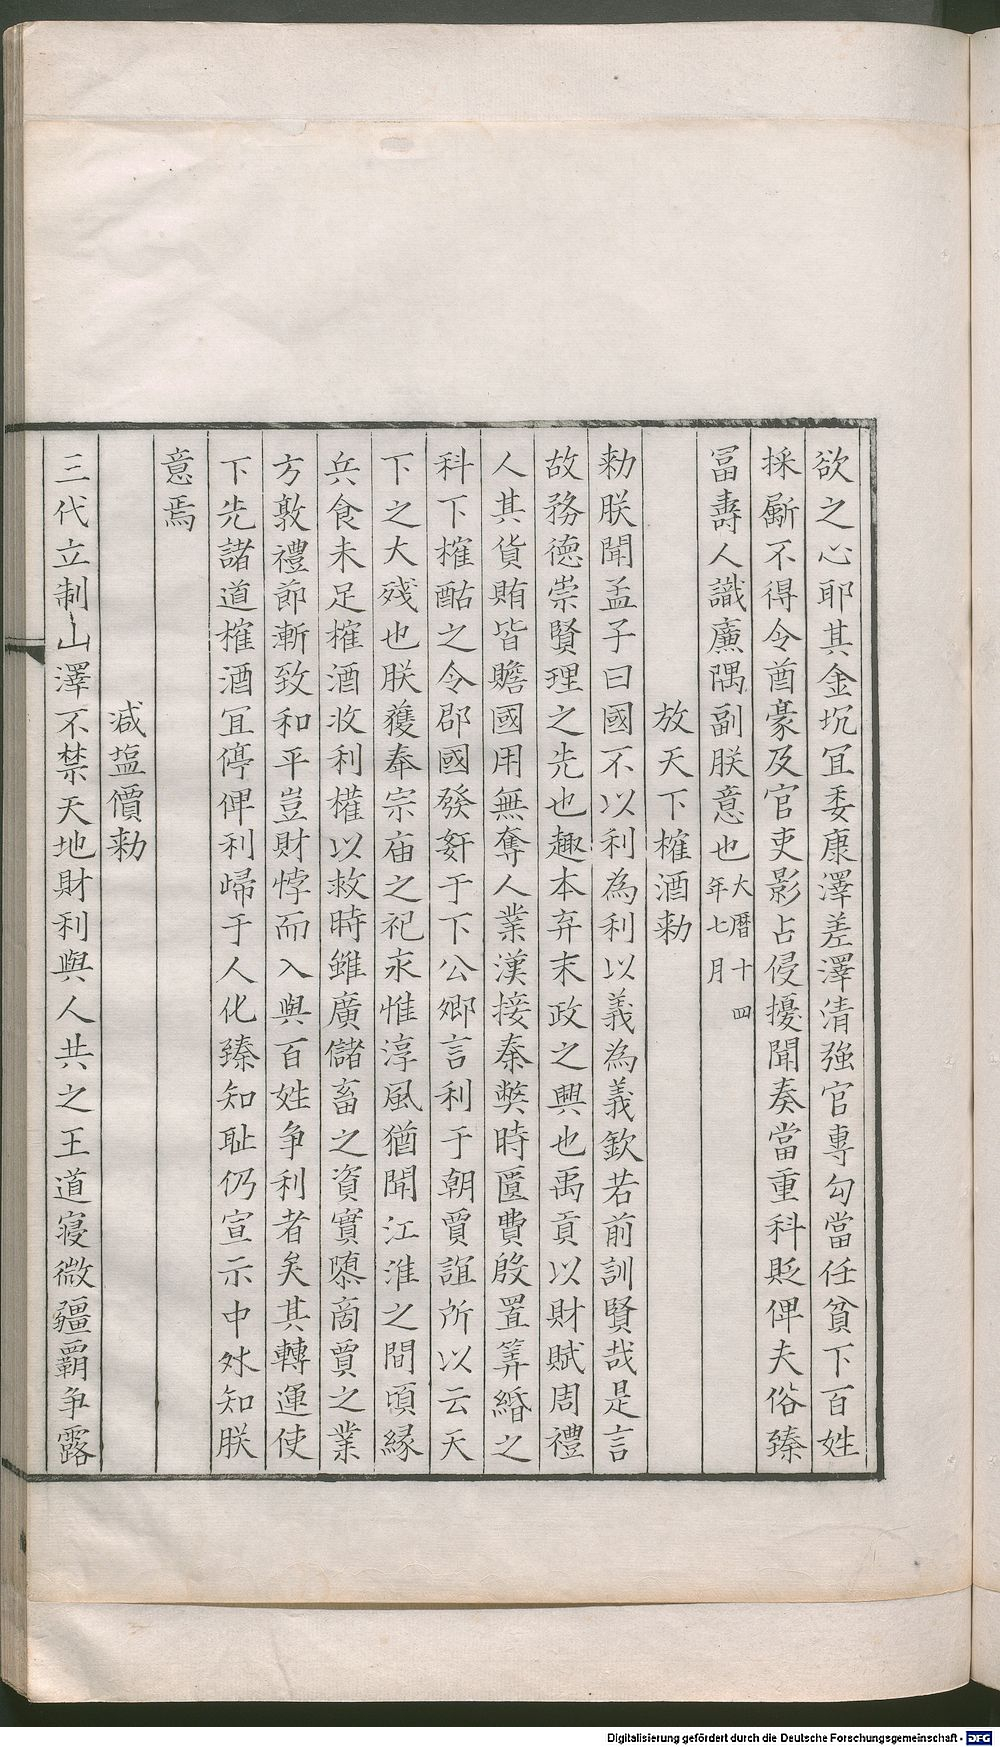 欲之心耶其金坑冝委康澤差澤清強官專勾當任貧下百姓
採斸不得令酋豪及官吏影占侵擾聞奏當重科貶俾夫俗臻
冨壽人識廉隅副朕意也大曆十四年七月
放天下榷酒勑
勑朕聞孟子曰國不以利為利以義為義欽若前訓賢哉是言
故務德崇賢理之先也趣本弃末政之興也禹貢以財賦周禮
人其貨賄皆贍國用無奪人業漢接秦獘時匱費殷置筭緡之
科下榷酤之令郡國發姧于下公卿言利于朝賈誼所以云天
下之大殘也朕獲奉宗庙之祀永惟淳風猶聞江淮之間頃緣
兵食未足榷酒收利權以救時雖廣儲畜之資實隳商賈之業
方敦禮節漸致和平豈財悖而入與百姓争利者矣其轉運使
下先諸道榷酒冝停俾利歸于人化臻知耻仍宣示中外知朕
意焉
減塩價勑
三代立制山澤不禁天地財利與人共之王道寖微疆覇争露
Digitalisierung gefördert durch die Deutsche Forschungsgemeinschaft - DFG